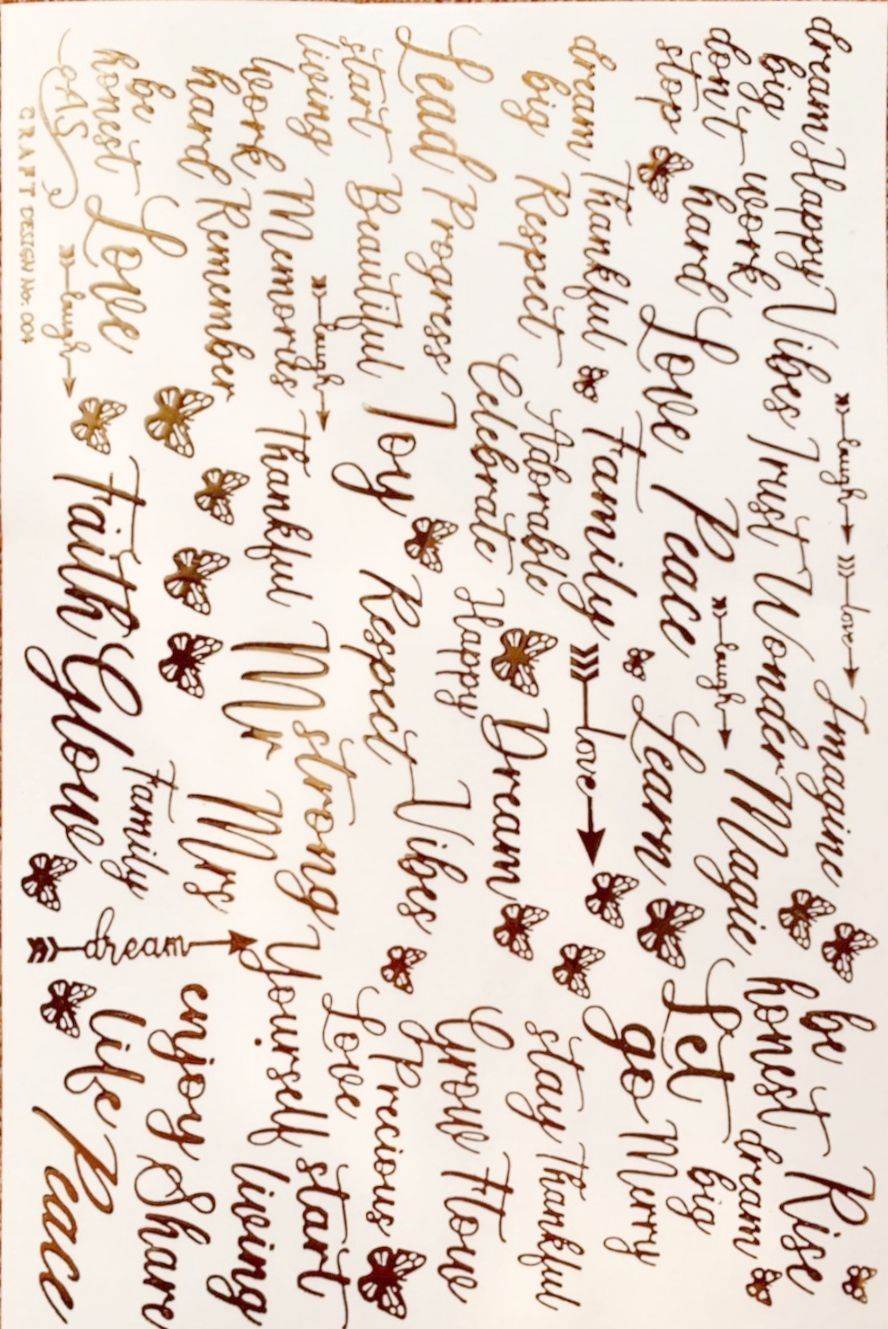 laugh love
dream Happy Vibes Imagine be Rise
big work Trust Wonder Magic honest dream
don't hard Love Peace laugh Let big
stop Learn go Merry
dream Thankful Family love stay Thankful
big Respect Adorable Dream Grow Flow
Celebrate Happy
Lead Progress Joy Respect Vibes Love Precious
start Beautiful strong Yourself start
living Memories laugh Thankful Mr living
work Remember Mrs enjoy Share
hard
be Love Family life Peace
honest laugh Faith Glow dream
AS
CRAFT DESIGN No. 004